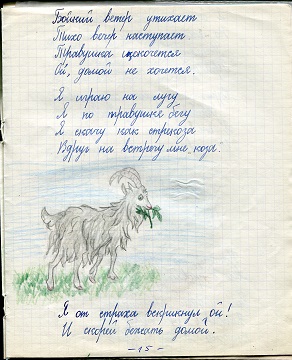 Бойкий ветер утихает
Тихо вечер наступает.
Травушка щекочется
Ой, домой не хочется.
Я играю на лугу
Я по травушке бегу
Я скачу как стрекоза
Вдруг на встречу мне коза.
Я от страха вскрикнул „ой!
И скорей бежать домой."
-15-